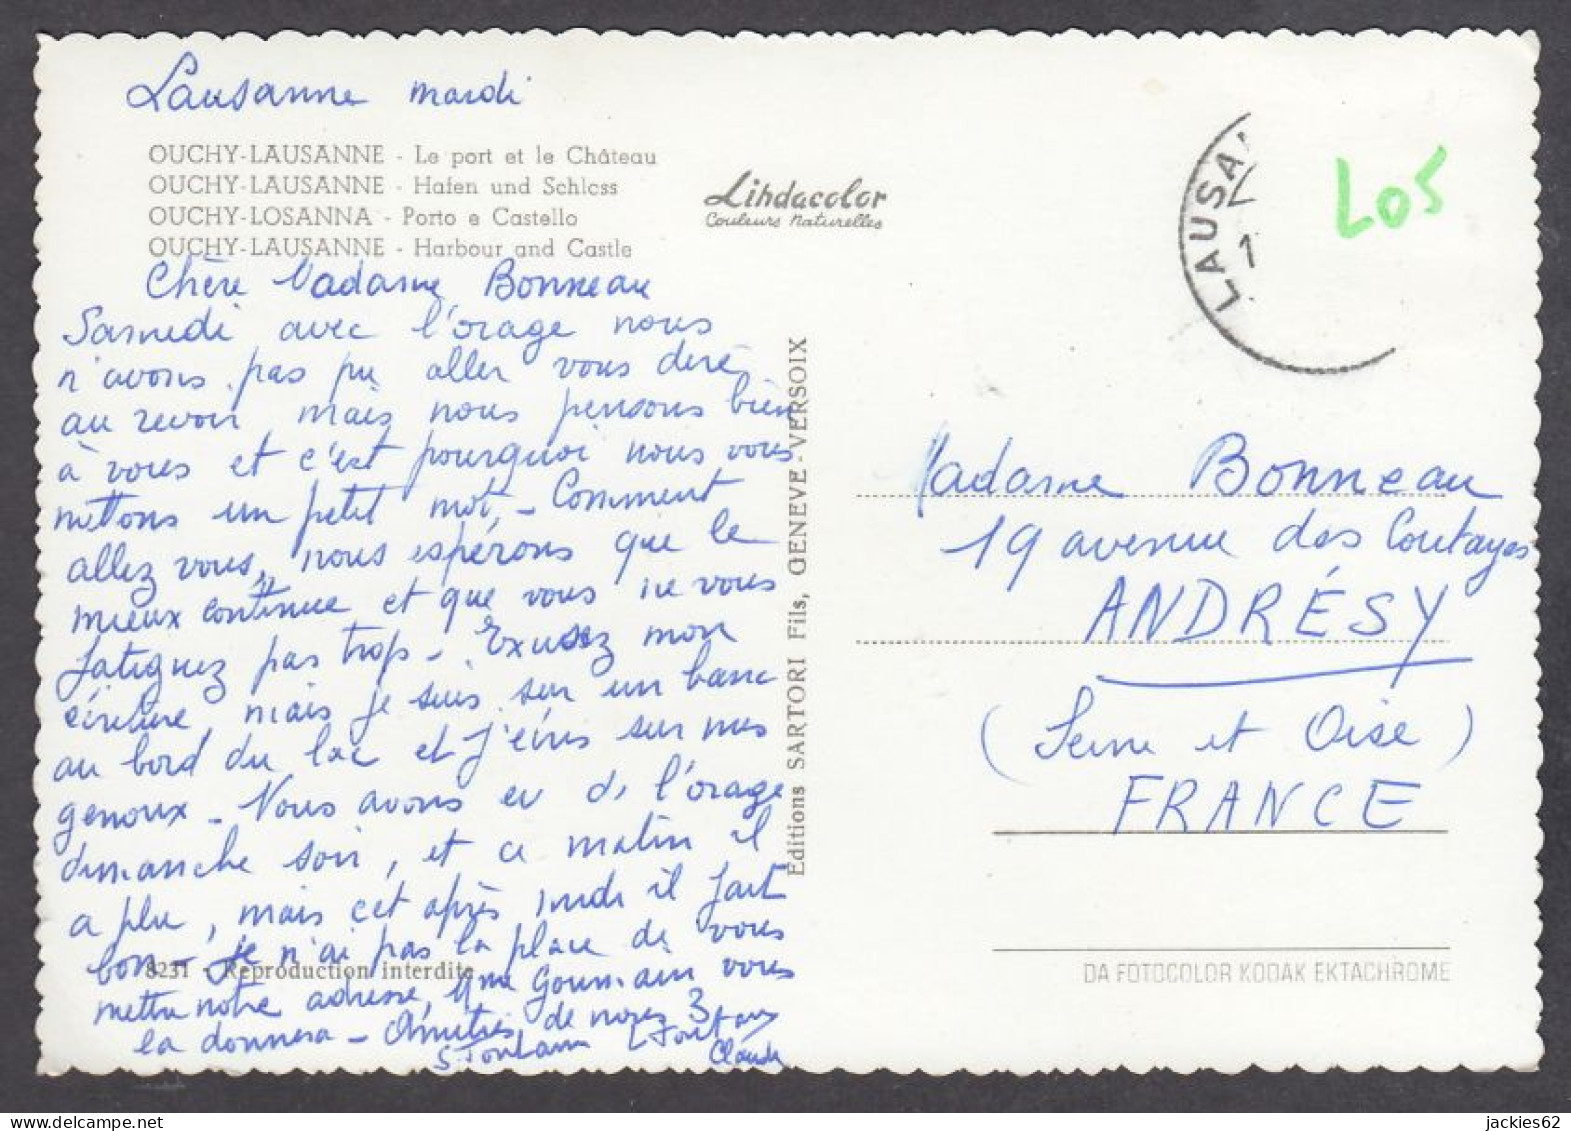 Lausanne mardi
OUCHY-LAUSANNE - Le port et le Château
OUCHY-LAUSANNE - Hafen und Schloss
OUCHY-LOSANNA - Porto e Castello
OUCHY-LAUSANNE - Harbour and Castle
Lindacolor
Couleurs Naturelles
Chère Madame Bonneau
Samedi avec l'orage nous
n'avons pas pu aller vous dire
au revoir mais nous pensons bien
à vous et c'est pourquoi nous vous
mettons un petit mot. - Comment
allez vous, nous espérons que le
mieux continue et que vous ne vous
fatiguez pas trop - Excusez mon
écriture mais je suis sur un banc
au bord du lac et j'écris sur mes
genoux - Nous avons eu de l'orage
dimanche soir, et ce matin il
a plu, mais cet après midi il fait
bon - Je n'ai pas la place de vous
mettre notre adresse, Mme vous
la donnera - Amitiés de nous 3
S. Fontann
Claude
8231 - Reproduction interdite
Editions SARTORI Fils, GENEVE-VERSOIX
LAUSAN
1
LOS
Madame Bonneau
19 avenue des Coutayes
ANDRÉSY
(Seine et Oise)
FRANCE
DA FOTOCOLOR KODAK EKTACHROME
jackies62